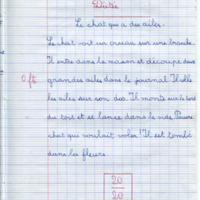 Dictée
Le chat qui a des ailes.
Le chat voit un oiseau sur une branche.
Il entre dans la maison et découpe deux
0 f
grandes ailes dans le journal. Il colle
les ailes sur son dos. Il monte sur le bord
du toit et se lance dans le vide. Pauvre
chat qui voulait voler ! Il est tombé
dans les fleurs.
20
20